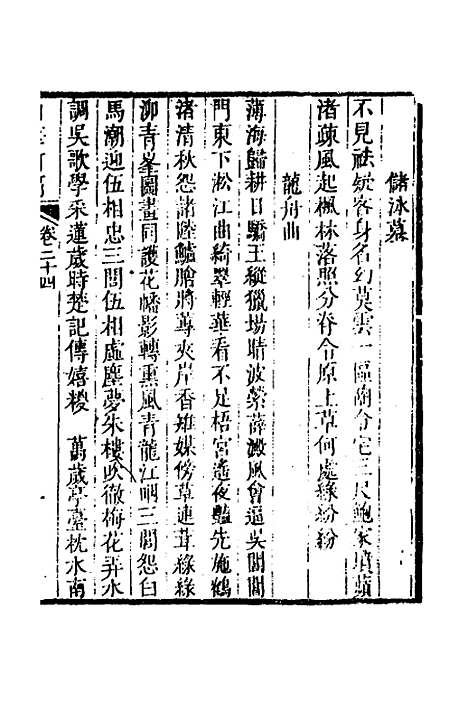 儲泳墓
不見祛疑客身名幻莫雲一區蘭分宅三尺鮑家墳蘋
渚疎風起楓林落照分脊令原上草何處綠紛紛
龍舟曲
薄海歸耕日驕王縱獵場晴波縈薜澱風會逼吳閶閶
門東下淞江曲綺翠輕華看不足梧宮遙夜豔先施鶴
渚清秋怨諸陸鱸膾將蓴夾岸香雉媒傍草連茸綠綠
泖青峯圖畫同護花幡影轉熏風青龍江咽三閭怨白
馬潮迎伍相忠三閭伍相虛塵夢朱樓吹徹梅花弄水
調吳歌學采蓮歲時楚記傳嬉糉 萬歲亭臺枕水南
卷二十四